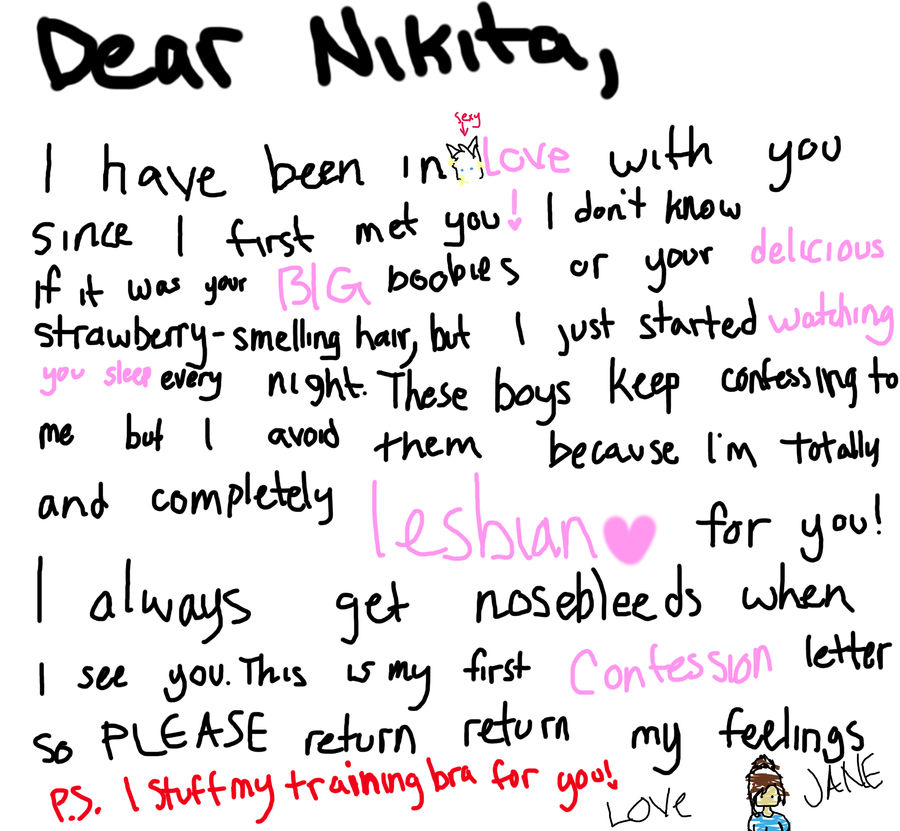 Dear Nikita,
sexy
I have been in love with you
since I first met you! I don't know
if it was your BIG boobies or your delicious
strawberry-smelling hair, but I just started watching
you sleep every night. These boys keep confessing to
me but I avoid them because I'm totally
and completely lesbian for you!
I always get nosebleeds when
I see you. This is my first confession letter
so PLEASE return return my feelings
P.S. I stuff my training bra for you!
LOVE JANE